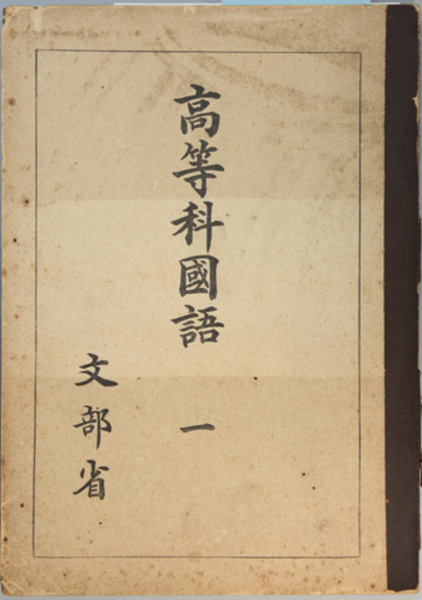 高等科國語 一
文部省